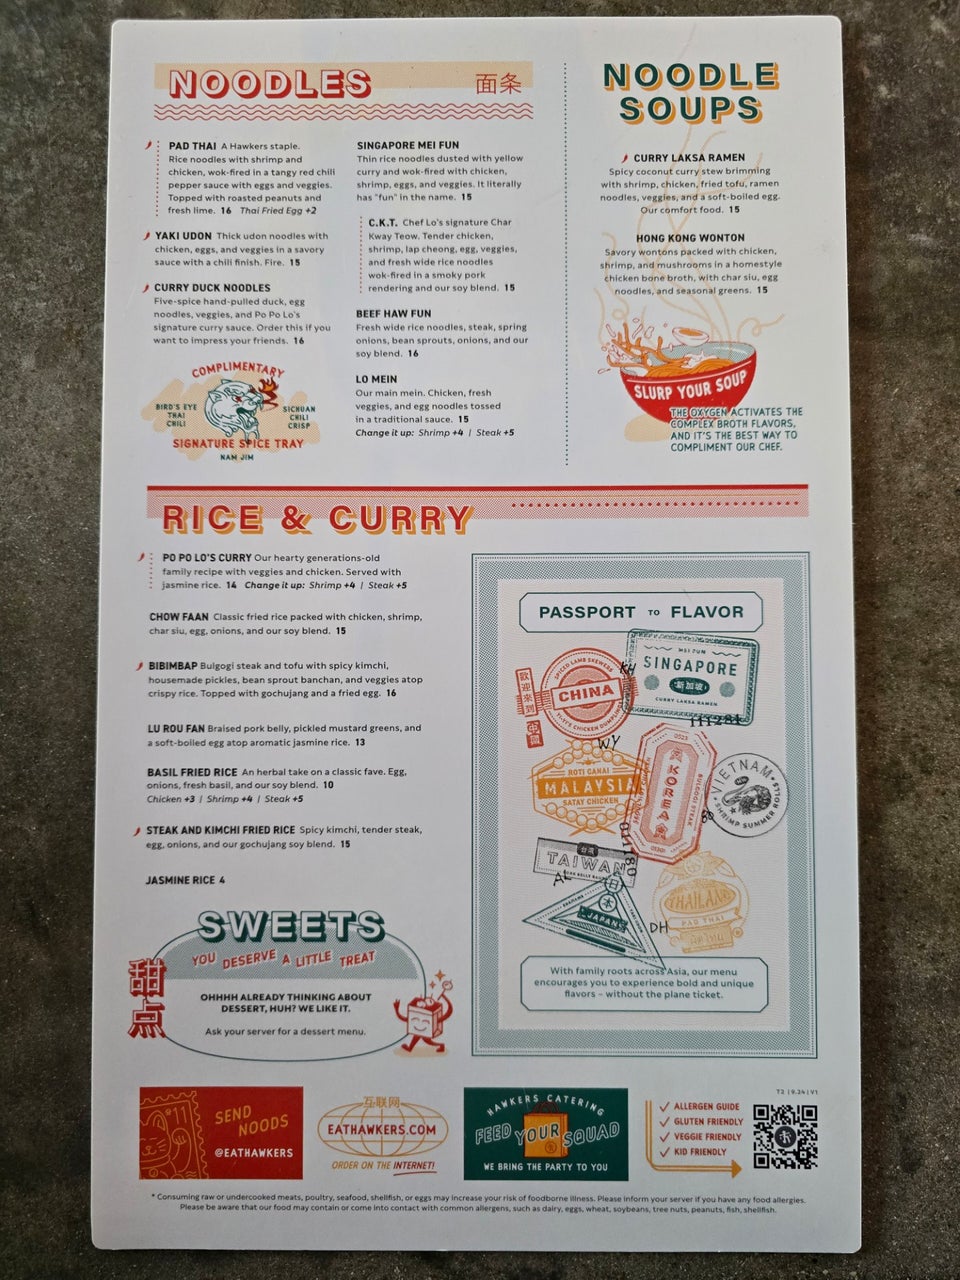 NOODLES 面条
PAD THAI A Hawkers staple.
Rice noodles with shrimp and
chicken, wok-fired in a tangy red chili
pepper sauce with eggs and veggies.
Topped with roasted peanuts and
fresh lime. 16 Thai Fried Egg +2
YAKI UDON Thick udon noodles with
chicken, eggs, and veggies in a savory
sauce with a chili finish. Fire. 15
CURRY DUCK NOODLES
Five-spice hand-pulled duck, egg
noodles, veggies, and Po Po Lo's
signature curry sauce. Order this if you
want to impress your friends. 16
COMPLIMENTARY
BIRD'S EYE
THAI
CHILI
SICHUAN
CHILI
CRISP
SIGNATURE SPICE TRAY
NAM JIM
SINGAPORE MEI FUN
Thin rice noodles dusted with yellow
curry and wok-fired with chicken,
shrimp, eggs, and veggies. It literally
has "fun" in the name. 15
C.K.T. Chef Lo's signature Char
Kway Teow. Tender chicken,
shrimp, lap cheong, egg, veggies,
and fresh wide rice noodles
wok-fired in a smoky pork
rendering and our soy blend. 15
BEEF HAW FUN
Fresh wide rice noodles, steak, spring
onions, bean sprouts, onions, and our
soy blend. 16
LO MEIN
Our main mein. Chicken, fresh
veggies, and egg noodles tossed
in a traditional sauce. 15
Change it up: Shrimp +4 | Steak +5
NOODLE
SOUPS
CURRY LAKSA RAMEN
Spicy coconut curry stew brimming
with shrimp, chicken, fried tofu, ramen
noodles, veggies, and a soft-boiled egg.
Our comfort food. 15
HONG KONG WONTON
Savory wontons packed with chicken,
shrimp, and mushrooms in a homestyle
chicken bone broth, with char siu, egg
noodles, and seasonal greens. 15
SLURP YOUR SOUP
THE OXYGEN ACTIVATES THE
COMPLEX BROTH FLAVORS,
AND IT'S THE BEST WAY TO
COMPLIMENT OUR CHEF.
RICE & CURRY
PO PO LO'S CURRY Our hearty generations-old
family recipe with veggies and chicken. Served with
jasmine rice. 14 Change it up: Shrimp +4 | Steak +5
CHOW FAAN Classic fried rice packed with chicken, shrimp,
char siu, egg, onions, and our soy blend. 15
BIBIMBAP Bulgogi steak and tofu with spicy kimchi,
housemade pickles, bean sprout banchan, and veggies atop
crispy rice. Topped with gochujang and a fried egg. 16
LU ROU FAN Braised pork belly, pickled mustard greens, and
a soft-boiled egg atop aromatic jasmine rice. 13
BASIL FRIED RICE An herbal take on a classic fave. Egg,
onions, fresh basil, and our soy blend. 10
Chicken +3 | Shrimp +4 | Steak +5
STEAK AND KIMCHI FRIED RICE Spicy kimchi, tender steak,
egg, onions, and our gochujang soy blend. 15
JASMINE RICE 4
PASSPORT TO FLAVOR
歡迎來到
中國
SPICED LAMB SKEWERS
CHINA
YIAYI'S CHICKEN DUMPLINGS
KH
MEI FUN
SINGAPORE
新加坡
CURRY LAKSA RAMEN
111281
WY
ROTI CANAI
MALAYSIA
SATAY CHICKEN
0523
KOREA
BULGOGI STEAK
VIETNAM
SHRIMP SUMMER ROLLS
011180
台湾
TAIWAN
AL
日本
JAPAN
THAILAND
PAD THAI
DH
With family roots across Asia, our menu
encourages you to experience bold and unique
flavors – without the plane ticket.
SWEETS
YOU DESERVE A LITTLE TREAT
甜点
OHHHH ALREADY THINKING ABOUT
DESSERT, HUH? WE LIKE IT.
Ask your server for a dessert menu.
SEND
NOODS
@EATHAWKERS
互联网
EATHAWKERS.COM
ORDER ON THE INTERNET!
HAWKERS CATERING
FEED YOUR SQUAD
WE BRING THE PARTY TO YOU
ALLERGEN GUIDE
GLUTEN FRIENDLY
VEGGIE FRIENDLY
KID FRIENDLY
T2 | 9.24 | V1
* Consuming raw or undercooked meats, poultry, seafood, shellfish, or eggs may increase your risk of foodborne illness. Please inform your server if you have any food allergies.
Please be aware that our food may contain or come into contact with common allergens, such as dairy, eggs, wheat, soybeans, tree nuts, peanuts, fish, shellfish.